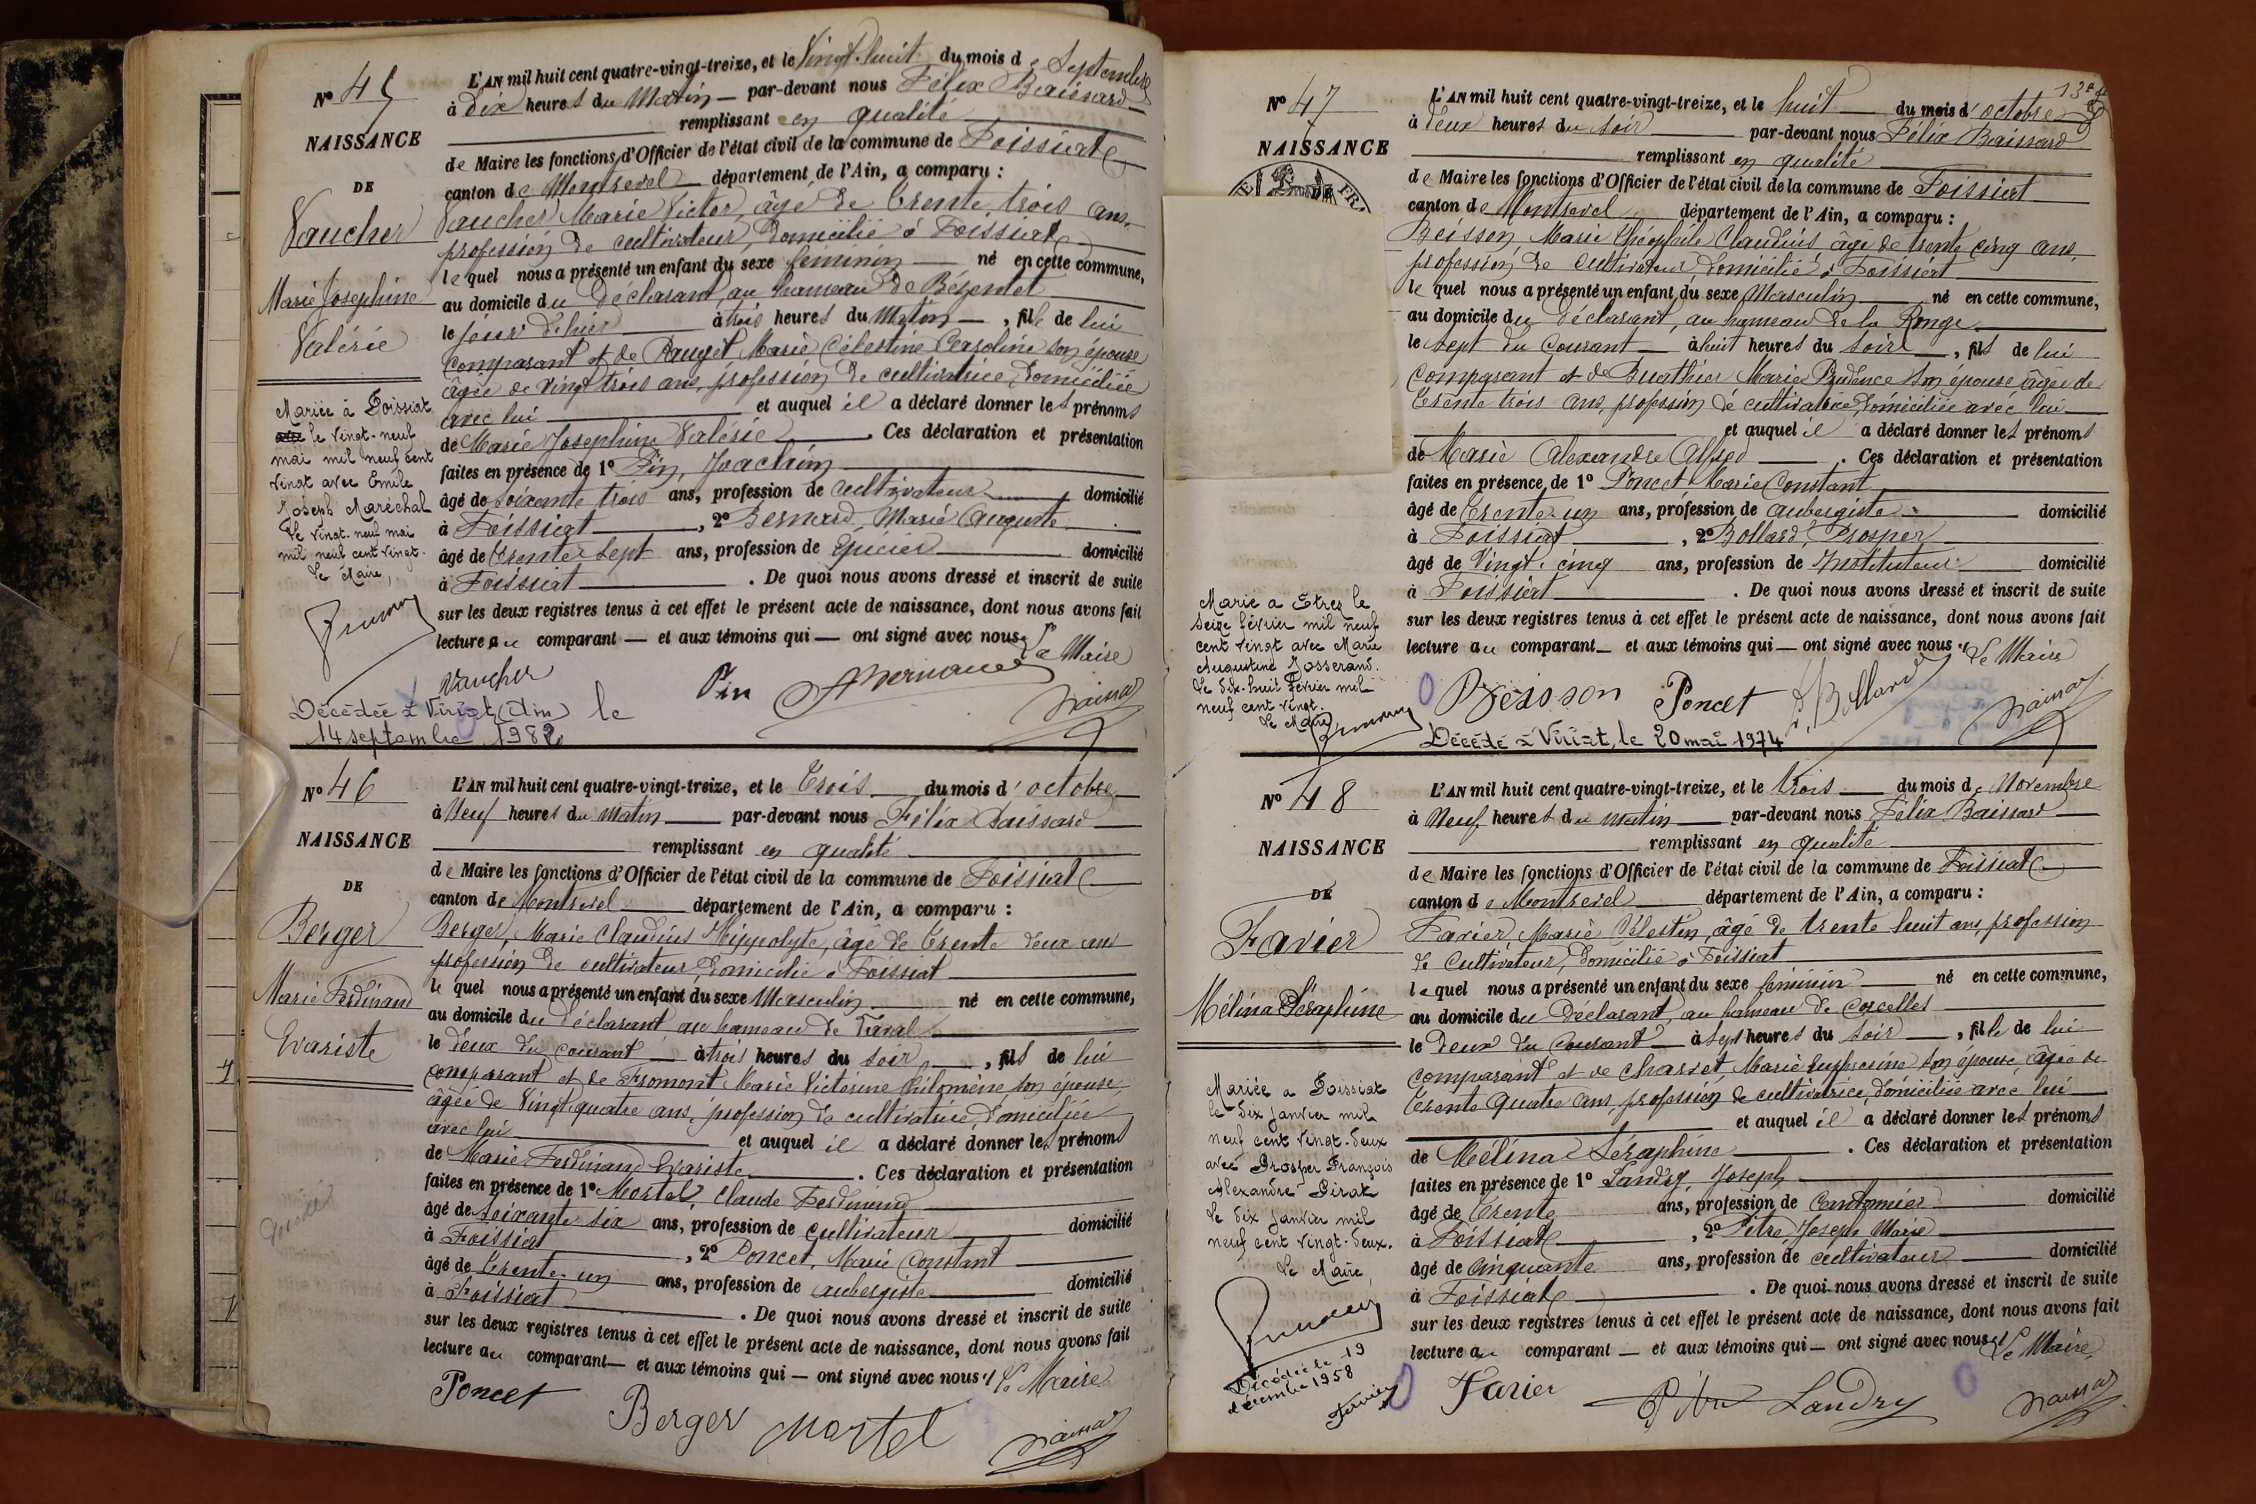 N° 45
NAISSANCE
DE
Vaucher
Marie Josephine
Valérie
Mariée à Foissiat
le vingt-neuf
mai mil neuf cent
vingt avec Emile
Joseph Maréchal
Le vingt-neuf mai
mil neuf cent vingt.
Le Maire,
L'AN mil huit cent quatre-vingt-treize, et le Vingt-huit du mois de Septembre
à Dix heures du Matin par-devant nous Félix Baissard
remplissant en qualité
de Maire les fonctions d'Officier de l'état civil de la commune de Foissiat
canton de Montrevel département de l'Ain, a comparu :
Vaucher Marie Victor, âgé de trente trois ans,
profession de cultivateur, domicilié à Foissiat
lequel nous a présenté un enfant du sexe féminin né en cette commune,
au domicile du déclarant, au hameau de Bésentet
le jour d'hier à trois heures du Matin, fille de lui
comparant et de Rauget Marie Célestine Caroline son épouse
âgée de vingt trois ans, profession de cultivatrice, domiciliée
avec lui et auquel il a déclaré donner les prénoms
de Marie Josephine Valérie. Ces déclaration et présentation
faites en présence de 1° Pin, Joachim
âgé de soixante trois ans, profession de cultivateur domicilié
à Foissiat, 2° Bernard, Marie Auguste
âgé de Trente sept ans, profession de Epicier domicilié
à Foissiat. De quoi nous avons dressé et inscrit de suite
sur les deux registres tenus à cet effet le présent acte de naissance, dont nous avons fait
lecture au comparant et aux témoins qui ont signé avec nous. Le Maire
Vaucher Pin Bernard Baissard
Décédée à Viriat (Ain) le
14 septembre 1982
N° 46
NAISSANCE
DE
Berger
Marie Ferdinand
Evariste
L'AN mil huit cent quatre-vingt-treize, et le Trois du mois d'octobre
à Neuf heures du Matin par-devant nous Félix Baissard
remplissant en qualité
de Maire les fonctions d'Officier de l'état civil de la commune de Foissiat
canton de Montrevel département de l'Ain, a comparu :
Berger, Marie Claudius Hippolyte, âgé de Trente deux ans
profession de cultivateur, domicilié à Foissiat
lequel nous a présenté un enfant du sexe Masculin né en cette commune,
au domicile du déclarant au hameau de Taval
le deux du courant à trois heures du soir, fils de lui
comparant et de Fromont Marie Victorine Philomène son épouse,
âgée de Vingt quatre ans, profession de cultivatrice, domiciliée
avec lui et auquel il a déclaré donner les prénoms
de Marie Ferdinand Evariste. Ces déclaration et présentation
faites en présence de 1° Mortel, Claude Ferdinand
âgé de Soixante six ans, profession de cultivateur domicilié
à Foissiat, 2° Poncet, Marie Constant
âgé de Trente-un ans, profession de aubergiste domicilié
à Foissiat. De quoi nous avons dressé et inscrit de suite
sur les deux registres tenus à cet effet le présent acte de naissance, dont nous avons fait
lecture au comparant et aux témoins qui ont signé avec nous. Le Maire
Poncet Berger Mortel Baissard
N° 47
NAISSANCE
Marié à Etrez le
seize février mil neuf
cent vingt avec Marie
Augustine Josserand.
Le dix-huit février mil
neuf cent vingt.
Le Maire
13e
L'AN mil huit cent quatre-vingt-treize, et le huit du mois d'octobre
à deux heures du soir par-devant nous Félix Baissard
remplissant en qualité
de Maire les fonctions d'Officier de l'état civil de la commune de Foissiat
canton de Montrevel département de l'Ain, a comparu :
Béisson, Marie Théophile Claudius âgé de trente cinq ans,
profession de cultivateur domicilié à Foissiat
lequel nous a présenté un enfant du sexe Masculin né en cette commune,
au domicile du déclarant, au hameau de la Ronge
le sept du courant à huit heures du soir, fils de lui
comparant et de Buathier Marie Prudence son épouse âgée de
Trente trois ans, profession de cultivatrice, domiciliée avec lui
et auquel il a déclaré donner les prénoms
de Marie Alexandre Alfred. Ces déclaration et présentation
faites en présence de 1° Poncet Marie Constant
âgé de Trente un ans, profession de aubergiste domicilié
à Foissiat, 2° Bollard, Prosper
âgé de Vingt-cinq ans, profession de Instituteur domicilié
à Foissiat. De quoi nous avons dressé et inscrit de suite
sur les deux registres tenus à cet effet le présent acte de naissance, dont nous avons fait
lecture au comparant et aux témoins qui ont signé avec nous. Le Maire
Béisson Poncet P. Bollard Baissard
Décédé à Viriat, le 20 mai 1974
N° 48
NAISSANCE
DE
Favier
Mélina Séraphine
Mariée à Foissiat
le dix janvier mil
neuf cent vingt-deux
avec Prosper François
Alexandre Pirat
Le dix janvier mil
neuf cent vingt-deux.
Le Maire,
Décédée le 19
décembre 1958
L'AN mil huit cent quatre-vingt-treize, et le trois du mois de Novembre
à Neuf heures du matin par-devant nous Félix Baissard
remplissant en qualité
de Maire les fonctions d'Officier de l'état civil de la commune de Foissiat
canton de Montrevel département de l'Ain, a comparu :
Favier Marie Célestin, âgé de trente huit ans, profession
de cultivateur, domicilié à Foissiat
lequel nous a présenté un enfant du sexe féminin né en cette commune,
au domicile du déclarant au hameau de Corcelles
le deux du courant à sept heures du soir, fille de lui
comparant et de Charvet, Marie Euphrosine son épouse, âgée de
trente quatre ans, profession de cultivatrice, domiciliée avec lui
et auquel il a déclaré donner les prénoms
de Mélina Séraphine. Ces déclaration et présentation
faites en présence de 1° Landry Joseph
âgé de Trente ans, profession de Cantonnier domicilié
à Foissiat, 2° Pitre, Joseph Marie
âgé de cinquante ans, profession de cultivateur domicilié
à Foissiat. De quoi nous avons dressé et inscrit de suite
sur les deux registres tenus à cet effet le présent acte de naissance, dont nous avons fait
lecture au comparant et aux témoins qui ont signé avec nous. Le Maire,
Favier Pitre Landry Baissard